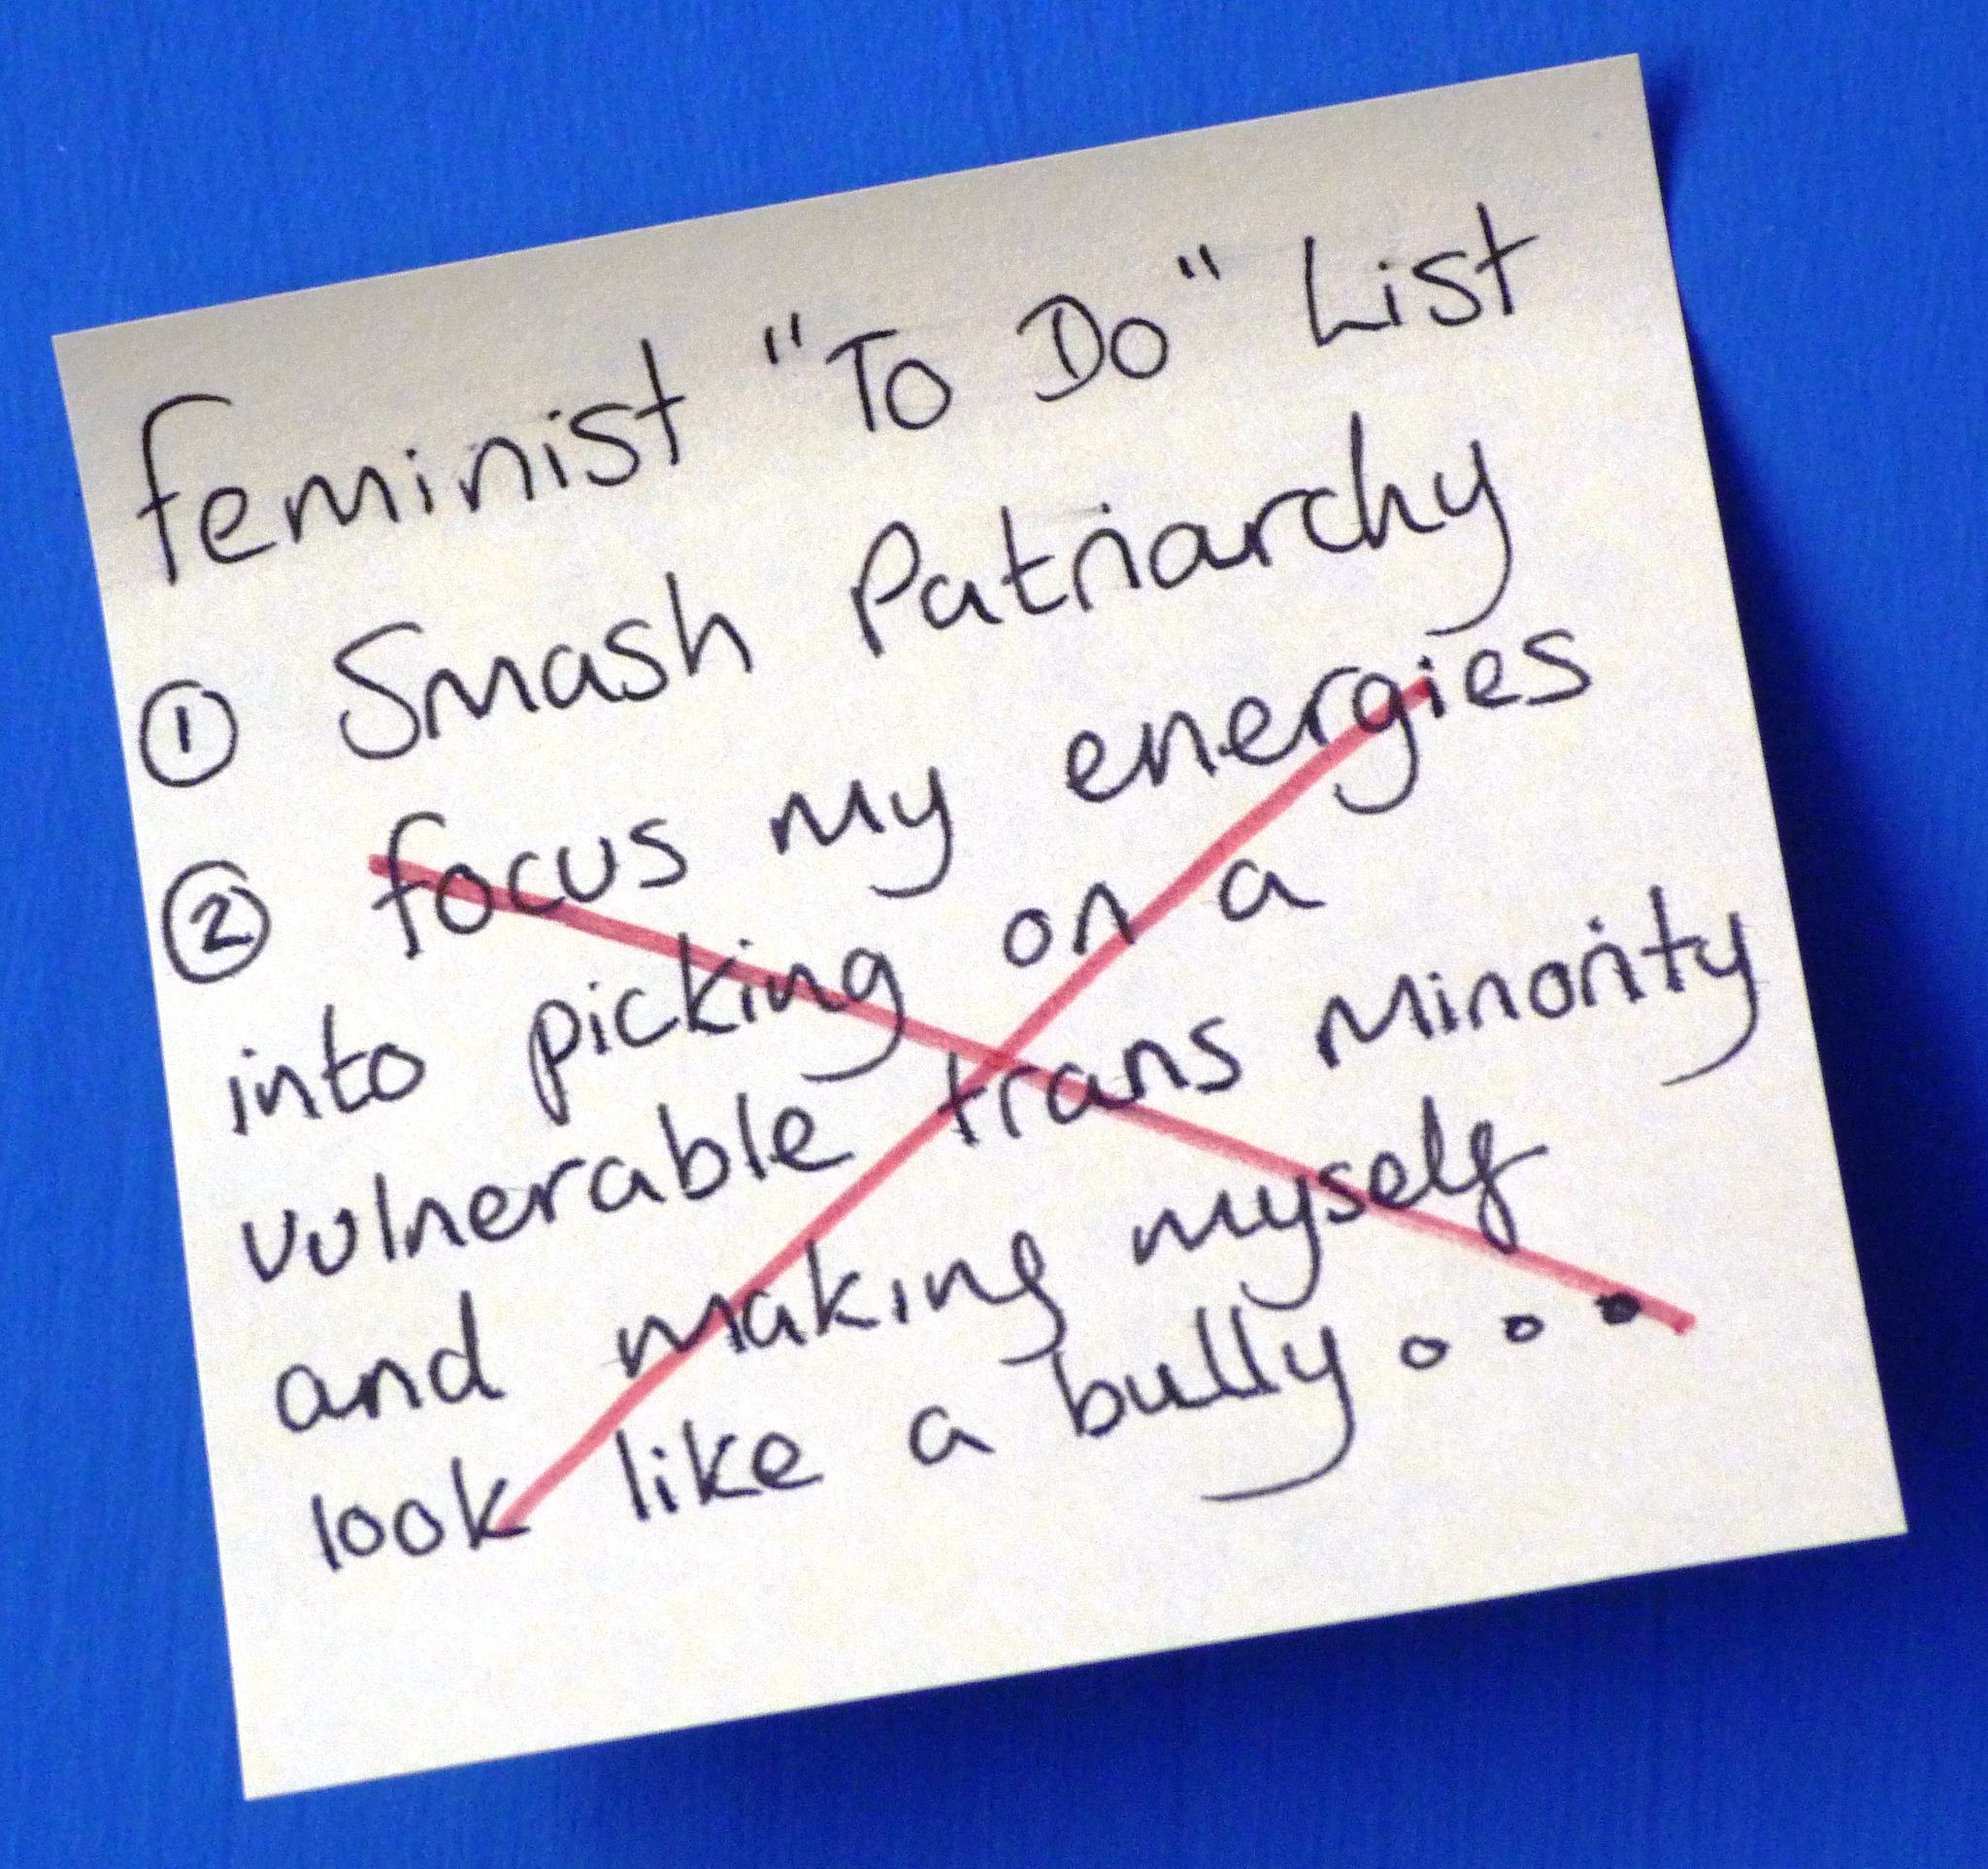 feminist "To Do" List
① Smash Patriarchy
② focus my energies
into picking on a
vulnerable trans minority
and making myself
look like a bully...